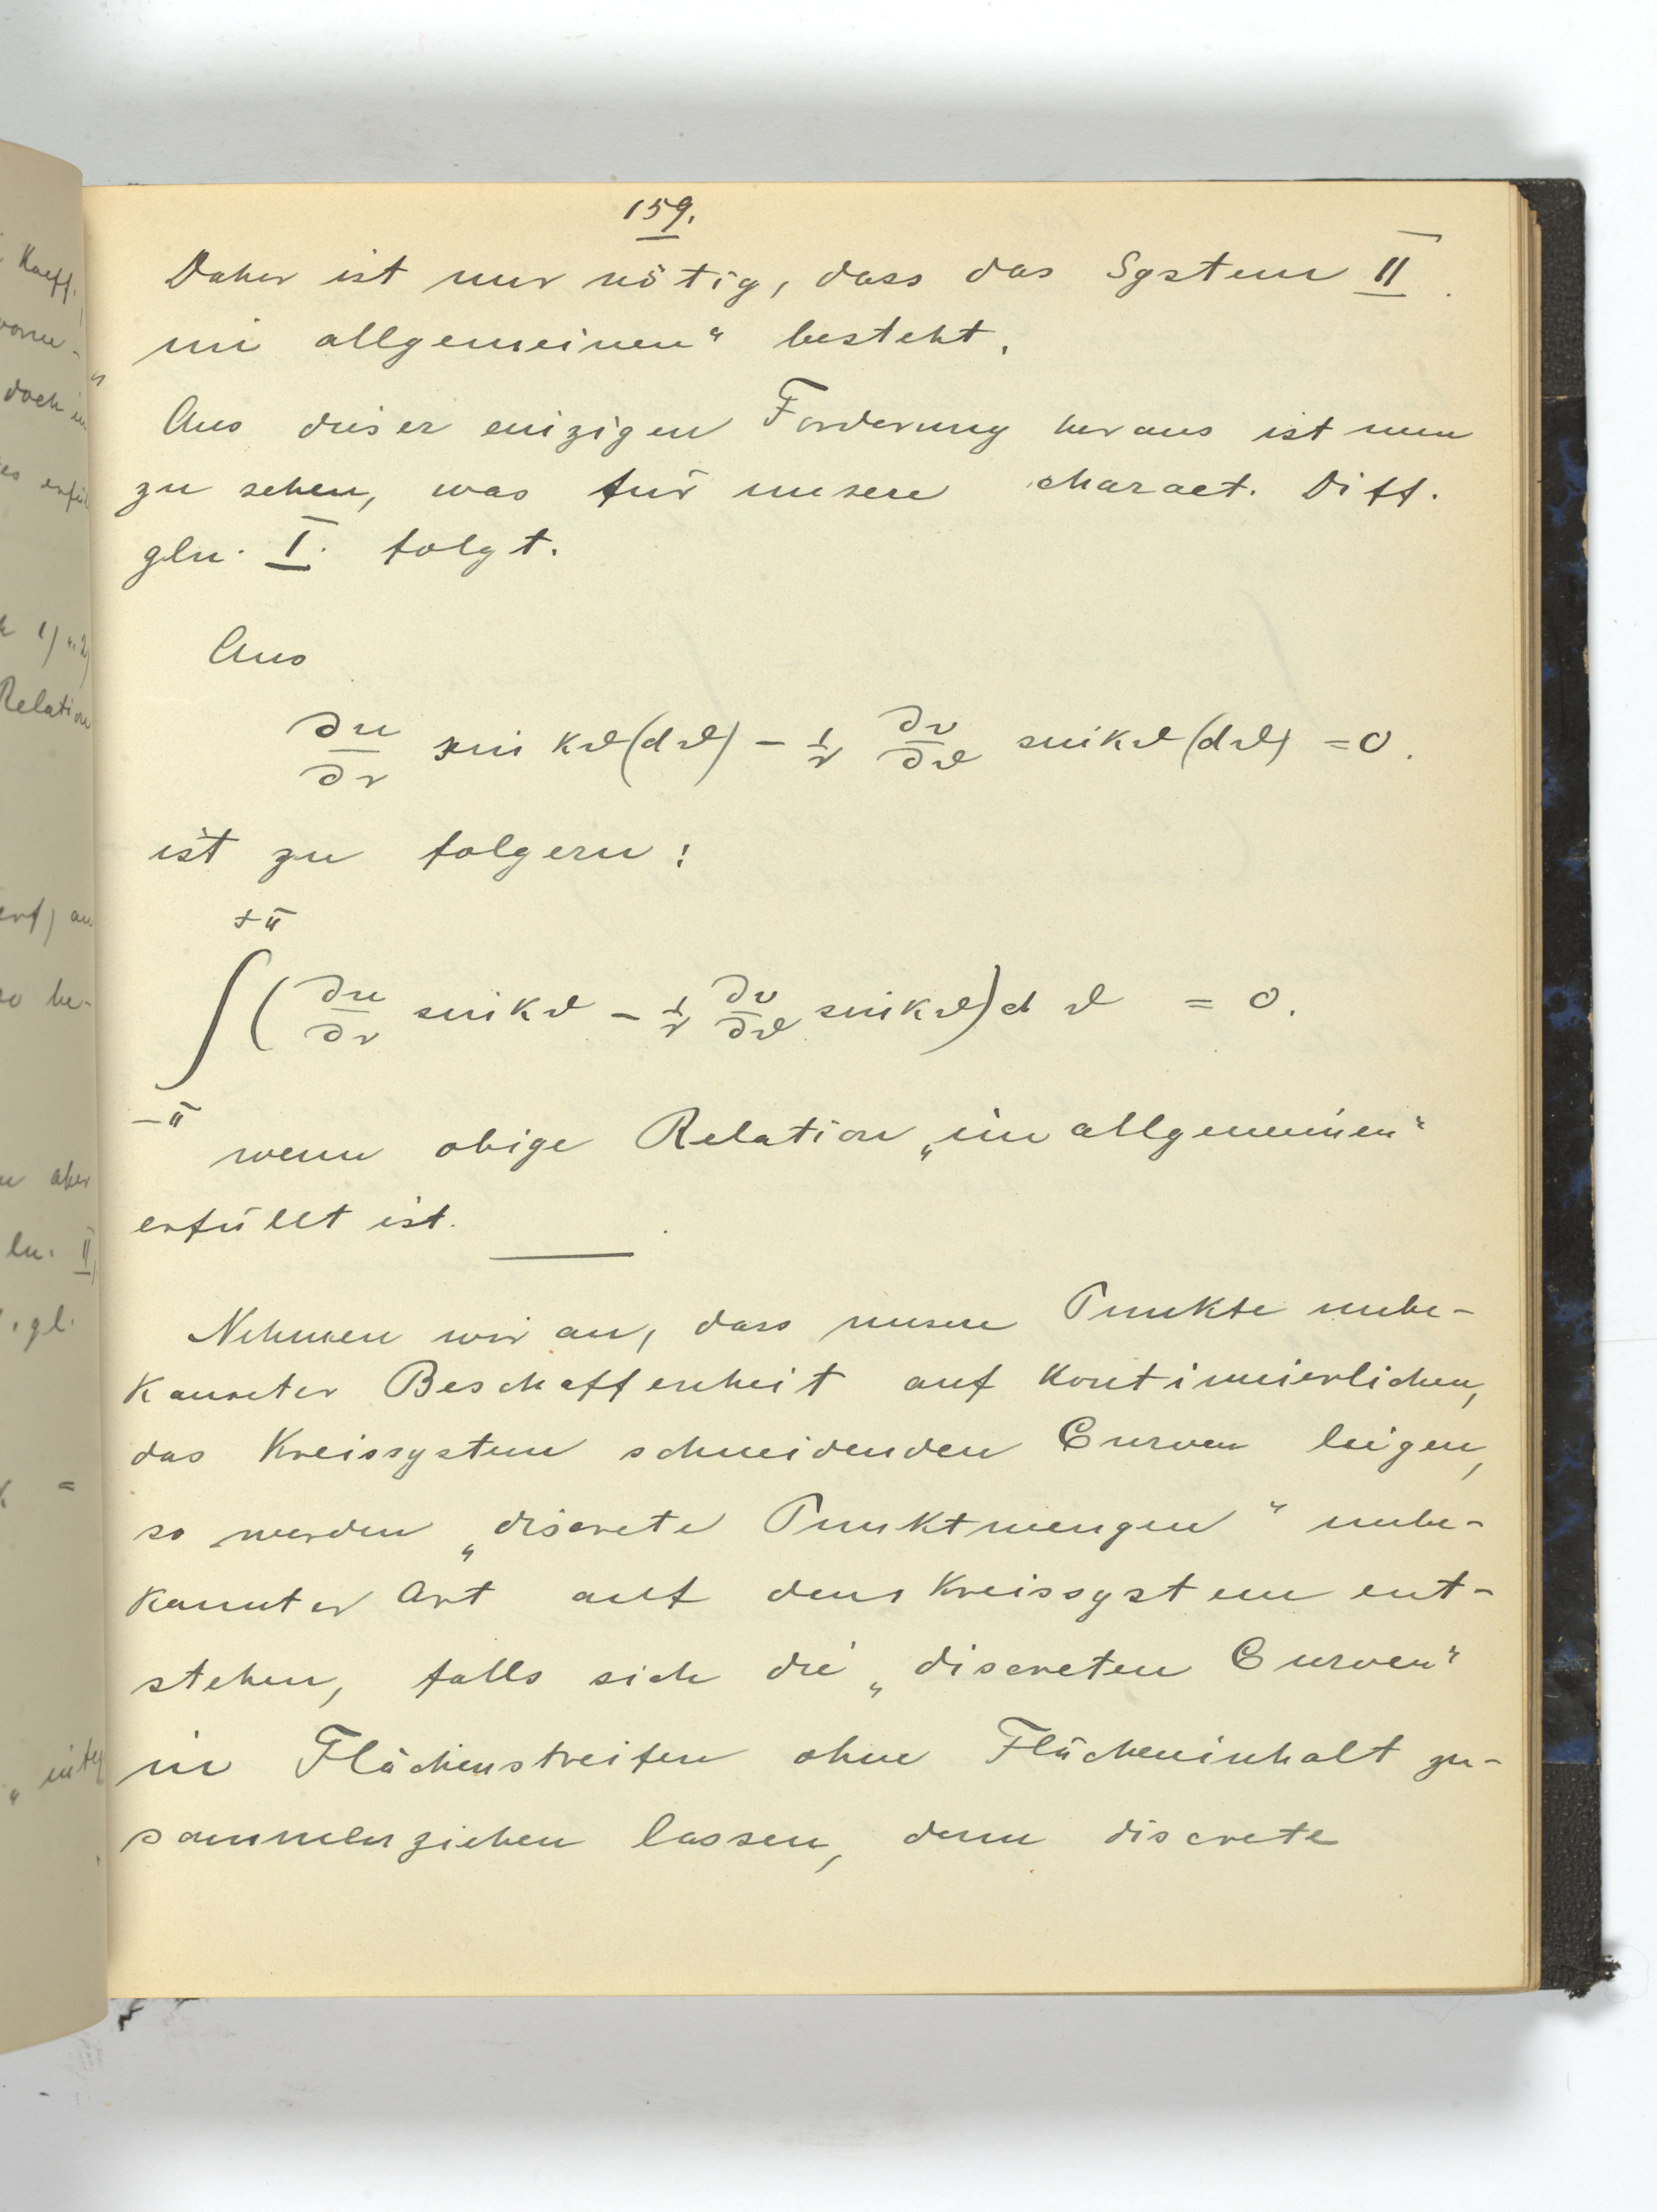 159.
Daher ist nur nötig, dass das System II
„im allgemeinen“ besteht.
Aus dieser einzigen Forderung heraus ist nun
zu sehen, was für unsere charact. Diff.
gln. I. folgt.
Aus
∂u/∂r sin kϑ(dϑ) − 1/r ∂v/∂ϑ sin kϑ(dϑ) = 0.
ist zu folgern:
∫_{−π}^{+π} (∂u/∂r sin kϑ − 1/r ∂v/∂ϑ sin kϑ) d ϑ = 0.
wenn obige Relation „im allgemeinen“
erfüllt ist.
Nehmen wir an, dass unsere Punkte unbe-
kannter Beschaffenheit auf kontinuierlichen,
das Kreissystem schneidenden Curven liegen,
so werden „discrete Punktmengen“ unbe-
kannter Art auf dem Kreissystem ent-
stehen, falls sich die „discreten Curven“
in Flächenstreifen ohne Flächeninhalt zu-
sammenziehen lassen, denn discrete